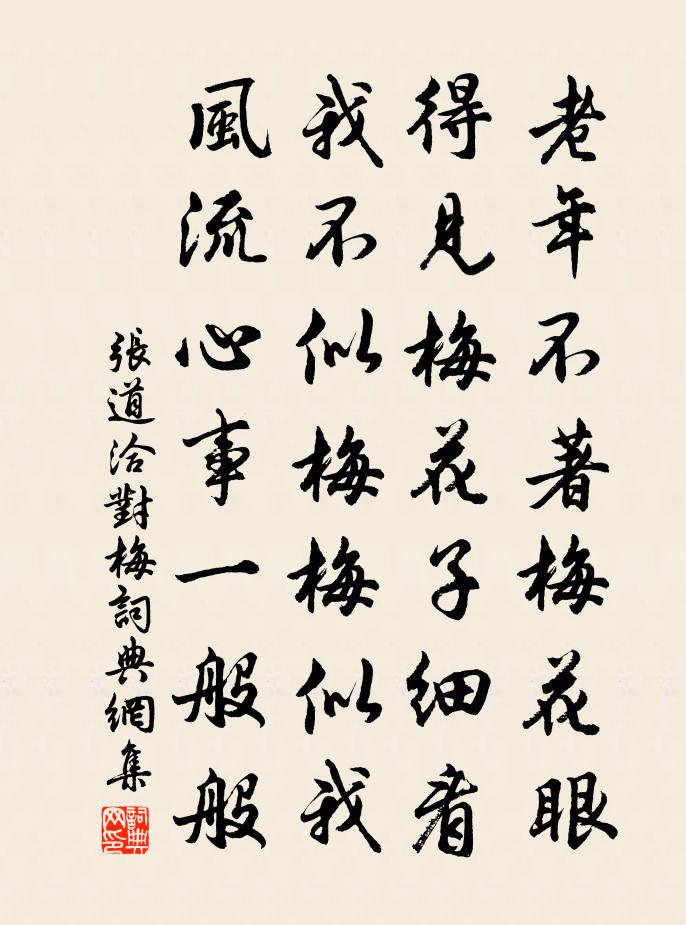 老年不著梅花眼
得見梅花子細看
我不似梅梅似我
風流心事一般般
張道洽對梅詞典網集
詞典
网印